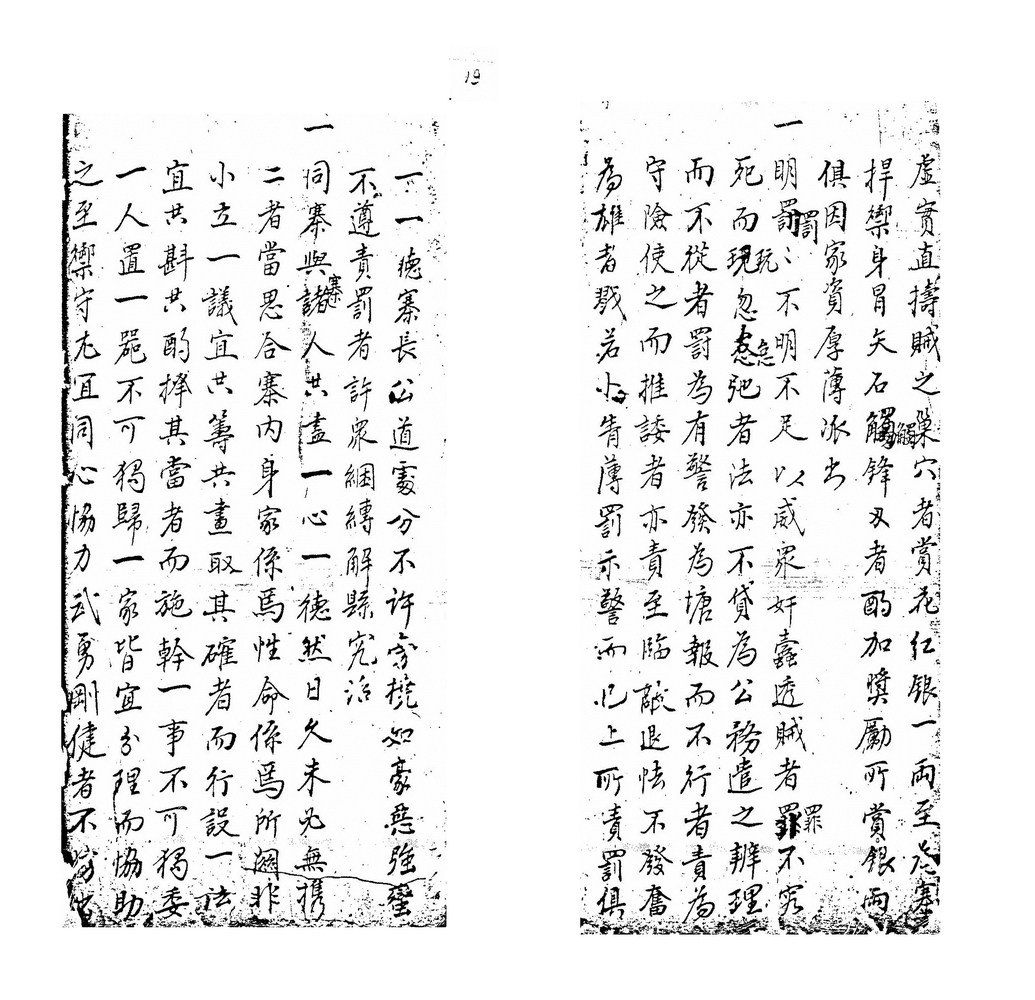 19
虛實直擣賊之巢穴者賞花紅銀一兩至於寨
捍禦身冒矢石觸鋒刃者酌加獎勵所賞銀兩
俱因家資厚薄派出
一明罰罰不明不足以威眾奸蠹透賊者罪不容
死而玩忽怠弛者法亦不貸為公務遣之辦理
而不從者罰為有警發為塘報而不行者責為
守險使之而推諉者亦責至臨敵退怯不發奮
為雄者戮若小眚薄罰示警而已上所責罰俱
一一德寨長公道處分不許
不遵責罰者許眾綑縛解縣究治
一同寨與諸寨人共盡一心一德然日久未必無攜
二者當思合寨內身家係焉性命係焉所關非
小立一議宜共籌共畫取其確者而行設一法
宜共斟共酌擇其當者而施幹一事不可獨委
一人置一器不可獨歸一家皆宜分理而協助
之至禦守尤宜同心協力武勇剛健者不